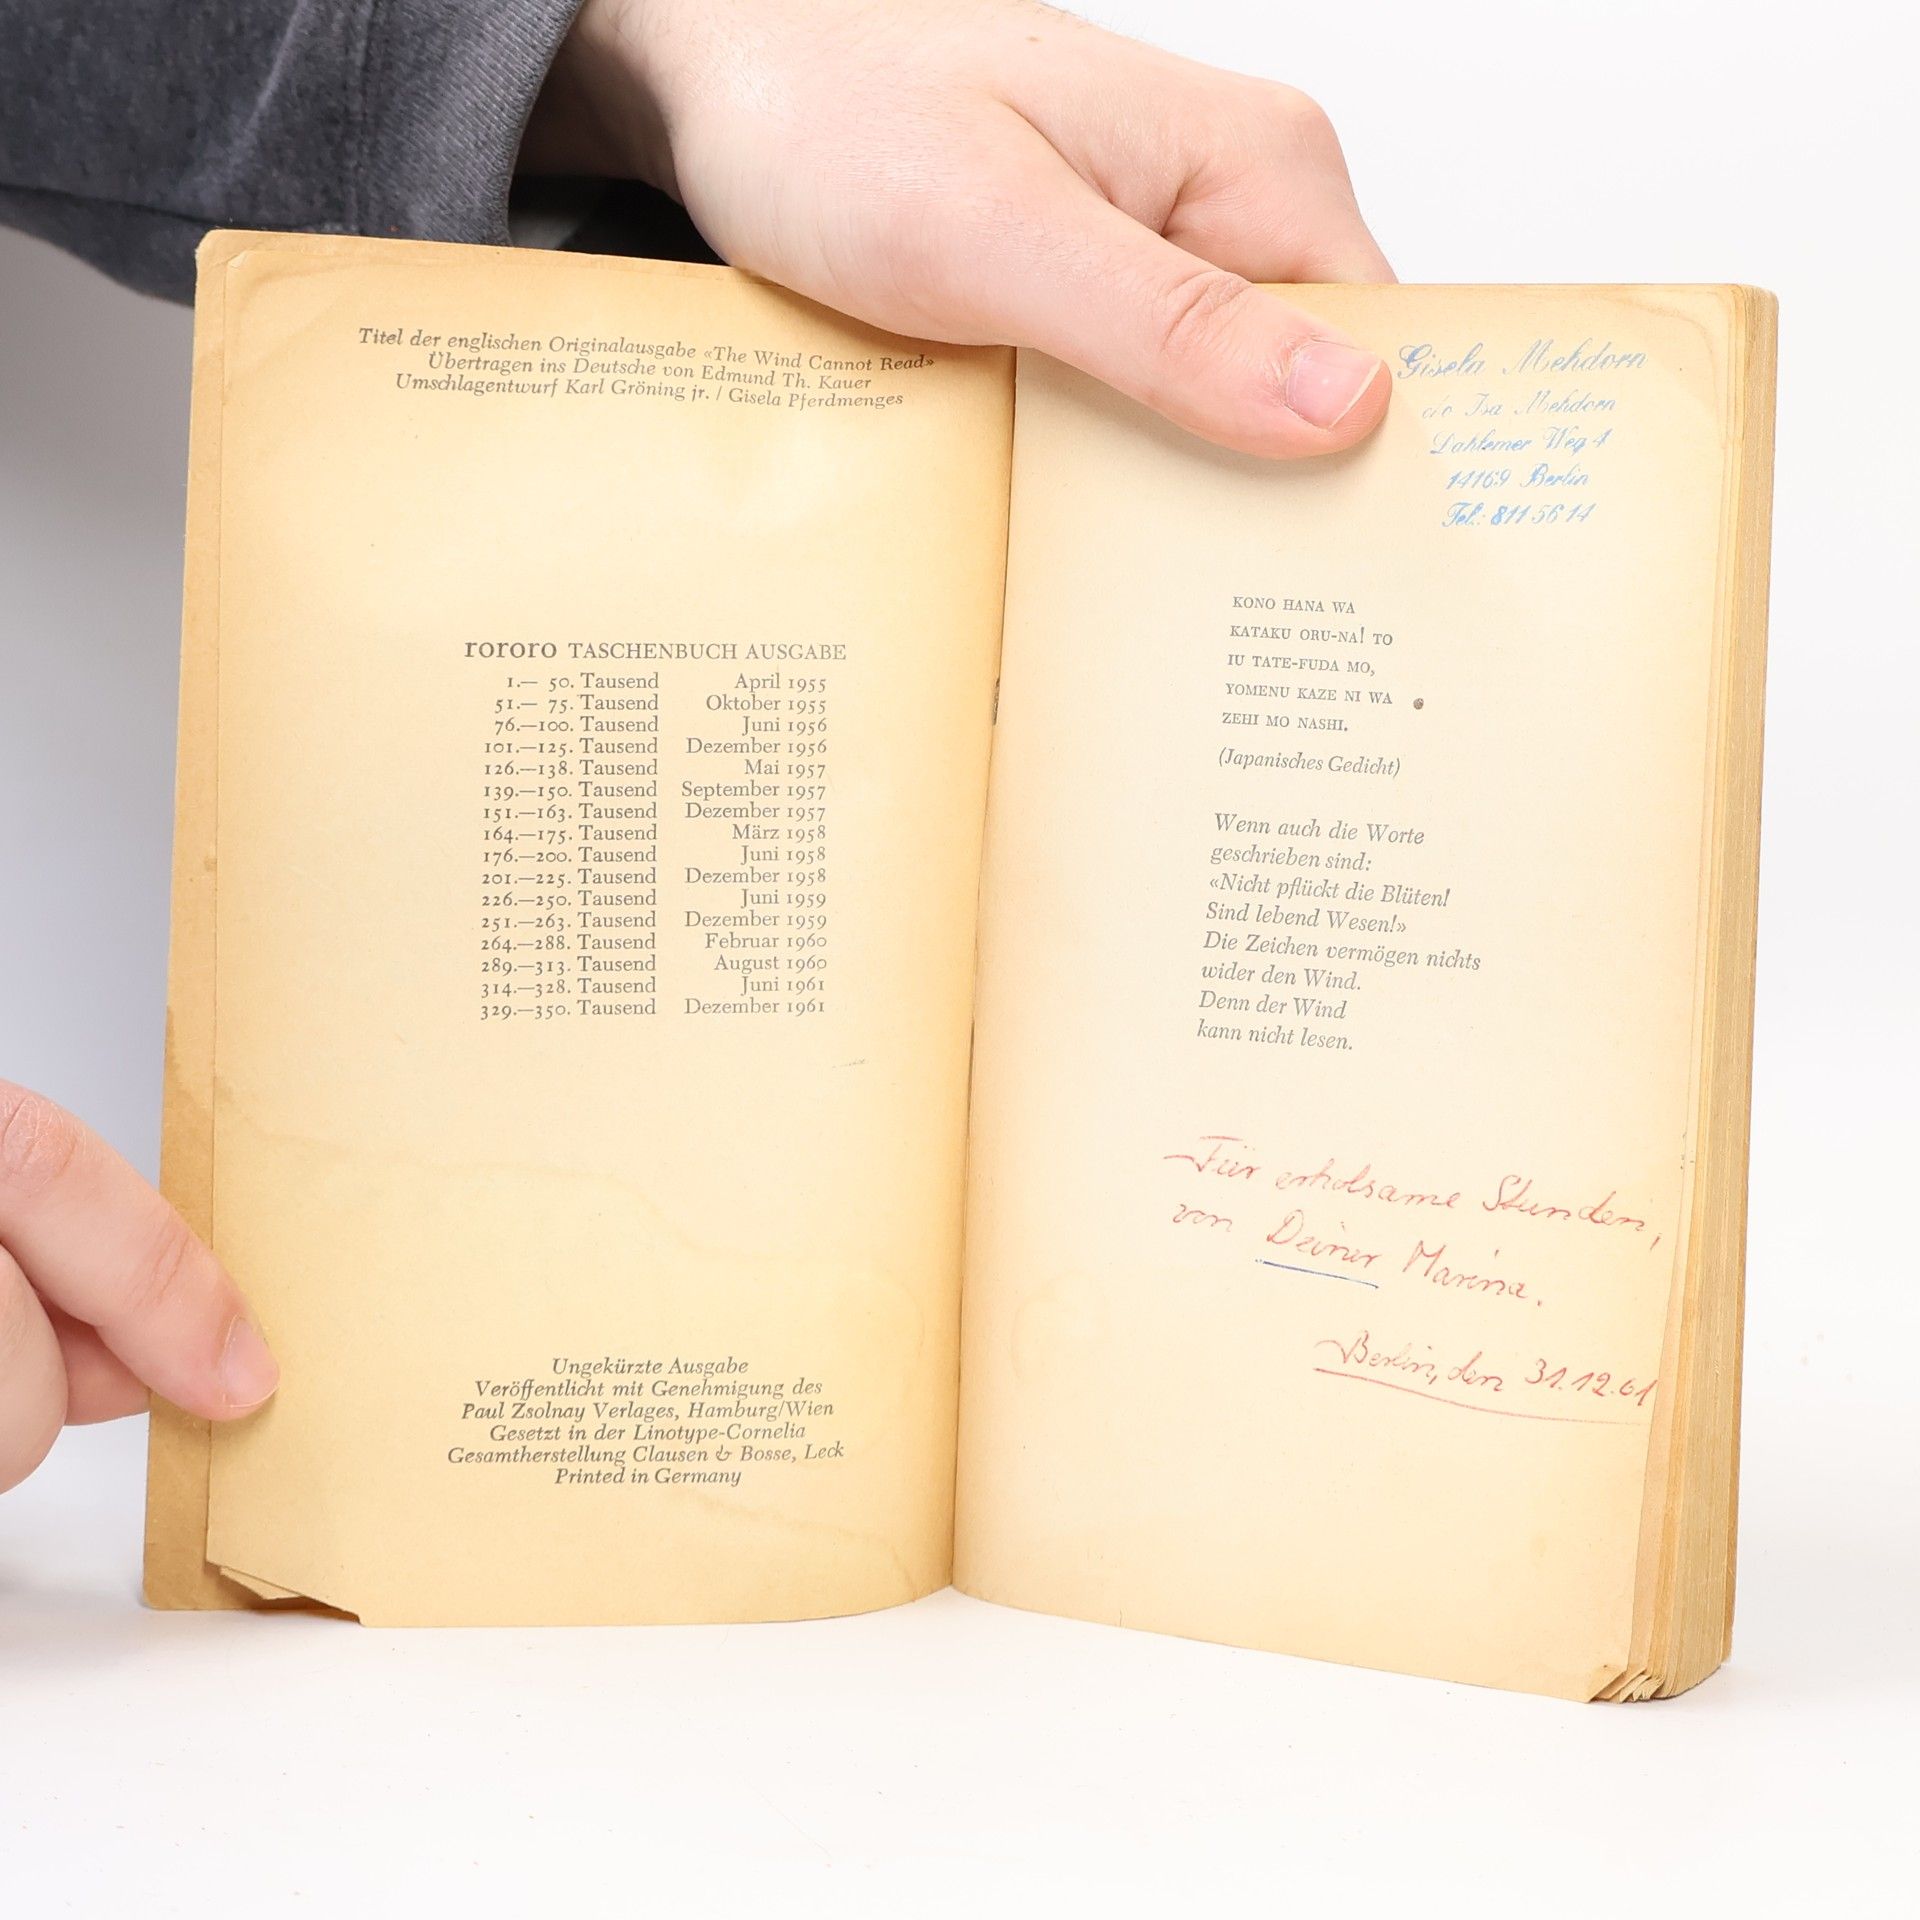 Titel der englischen Originalausgabe «The Wind Cannot Read»
Übertragen ins Deutsche von Edmund Th. Kauer
Umschlagentwurf Karl Gröning jr. / Gisela Pferdmenges
rororo TASCHENBUCH AUSGABE
1.— 50. Tausend April 1955
51.— 75. Tausend Oktober 1955
76.—100. Tausend Juni 1956
101.—125. Tausend Dezember 1956
126.—138. Tausend Mai 1957
139.—150. Tausend September 1957
151.—163. Tausend Dezember 1957
164.—175. Tausend März 1958
176.—200. Tausend Juni 1958
201.—225. Tausend Dezember 1958
226.—250. Tausend Juni 1959
251.—263. Tausend Dezember 1959
264.—288. Tausend Februar 1960
289.—313. Tausend August 1960
314.—328. Tausend Juni 1961
329.—350. Tausend Dezember 1961
Ungekürzte Ausgabe
Veröffentlicht mit Genehmigung des
Paul Zsolnay Verlages, Hamburg/Wien
Gesetzt in der Linotype-Cornelia
Gesamtherstellung Clausen & Bosse, Leck
Printed in Germany
Gisela Mehdorn
c/o Isa Mehdorn
Dahlemer Weg 4
14169 Berlin
Tel.: 811 56 14
KONO HANA WA
KATAKU ORU-NA! TO
IU TATE-FUDA MO,
YOMENU KAZE NI WA
ZEHI MO NASHI.
(Japanisches Gedicht)
Wenn auch die Worte
geschrieben sind:
«Nicht pflückt die Blüten!
Sind lebend Wesen!»
Die Zeichen vermögen nichts
wider den Wind.
Denn der Wind
kann nicht lesen.
Für erholsame Stunden,
von Deiner Marina.
Berlin, den 31.12.61